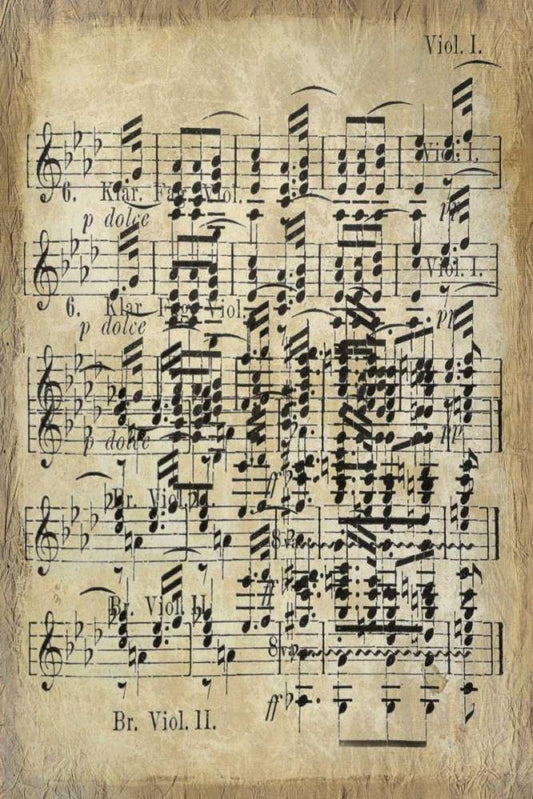 Viol. I.
Viol. I.
6. Klar. Fag. Viol.
p dolce
pp
Viol. I.
6. Klar. Fag. Viol.
p dolce
pp
p dolce
pp
ff
Br. Viol. II.
8va
Br. Viol. II.
ff
8va
ff
Br. Viol. II.